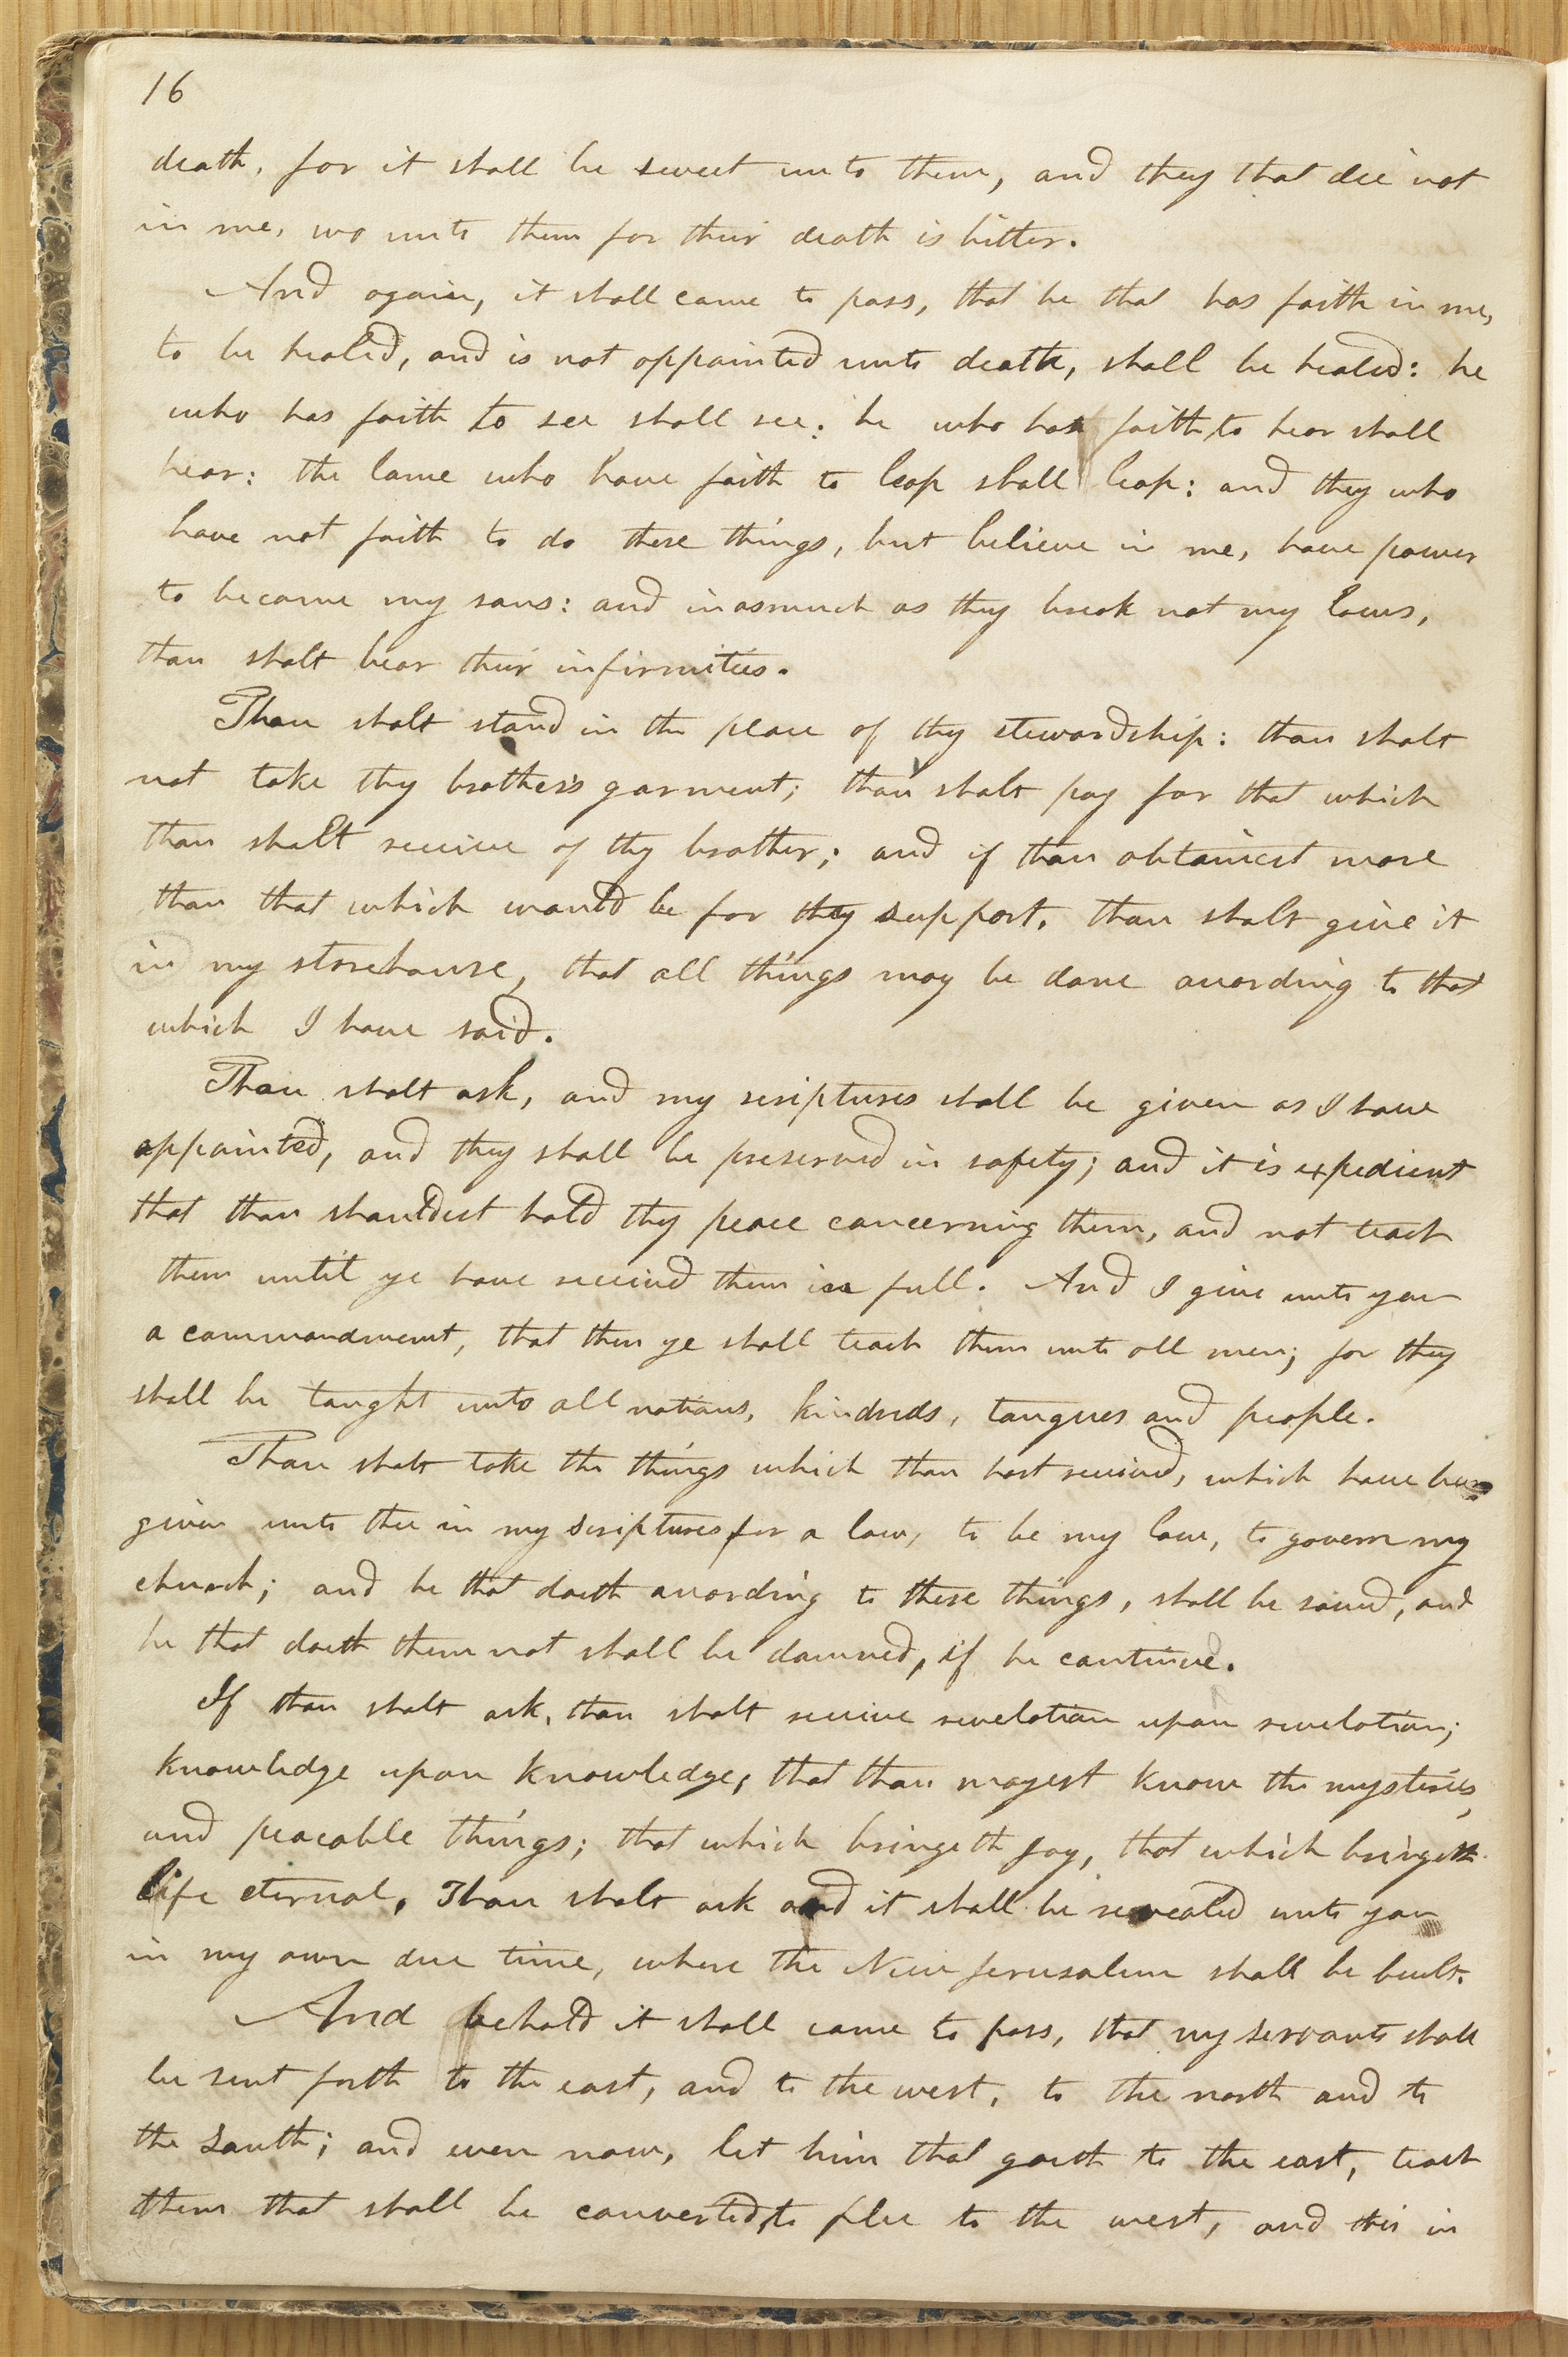 16
death, for it shall be sweet unto them, and they that die not
in me, wo unto them for their death is bitter.
And again, it shall come to pass, that he that has faith in me,
to be healed, and is not appointed unto death, shall be healed: he
who has faith to see shall see: he who has faith to hear shall
hear: the lame who have faith to leap shall leap: and they who
have not faith to do these things, but believe in me, have power
to become my sons: and inasmuch as they break not my laws,
thou shalt bear their infirmities.
Thou shalt stand in the place of thy stewardship: thou shalt
not take thy brother's garment; thou shalt pay for that which
thou shalt receive of thy brother; and if thou obtainest more
than that which would be for thy support, thou shalt give it
in my storehouse, that all things may be done according to that
which I have said.
Thou shalt ask, and my scriptures shall be given as I have
appointed, and they shall be preserved in safety; and it is expedient
that thou shouldest hold thy peace concerning them, and not teach
them until ye have received them in full. And I give unto you
a commandment, that then ye shall teach them unto all men; for they
shall be taught unto all nations, kindreds, tongues and people.
Thou shalt take the things which thou hast received, which have been
given unto thee in my scriptures for a law, to be my law, to govern my
church; and he that doeth according to these things, shall be saved, and
he that doeth them not shall be damned, if he continue.
If thou shalt ask, thou shalt receive revelation upon revelation;
knowledge upon knowledge, that thou mayest know the mysteries,
and peacable things; that which bringeth joy, that which bringeth
life eternal. Thou shalt ask and it shall be revealed unto you
in my own due time, where the New Jerusalem shall be built.
And behold it shall come to pass, that my servants shall
be sent forth to the east, and to the west, to the north and to
the south; and even now, let him that goeth to the east, teach
them that shall be converted, to flee to the west, and this in